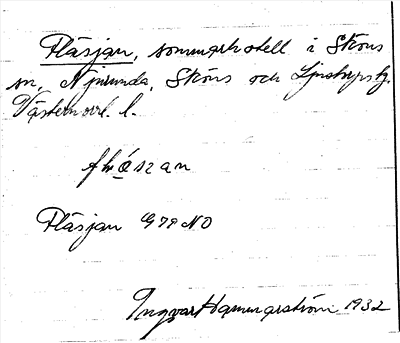 Fläsjan, sommarhotell i Sköns
sn, Njurunda, Sköns och Ljustorps tg.
Västernorrl. l.
Fläsjan G 79 NO
Ingvar Hammarström 1932